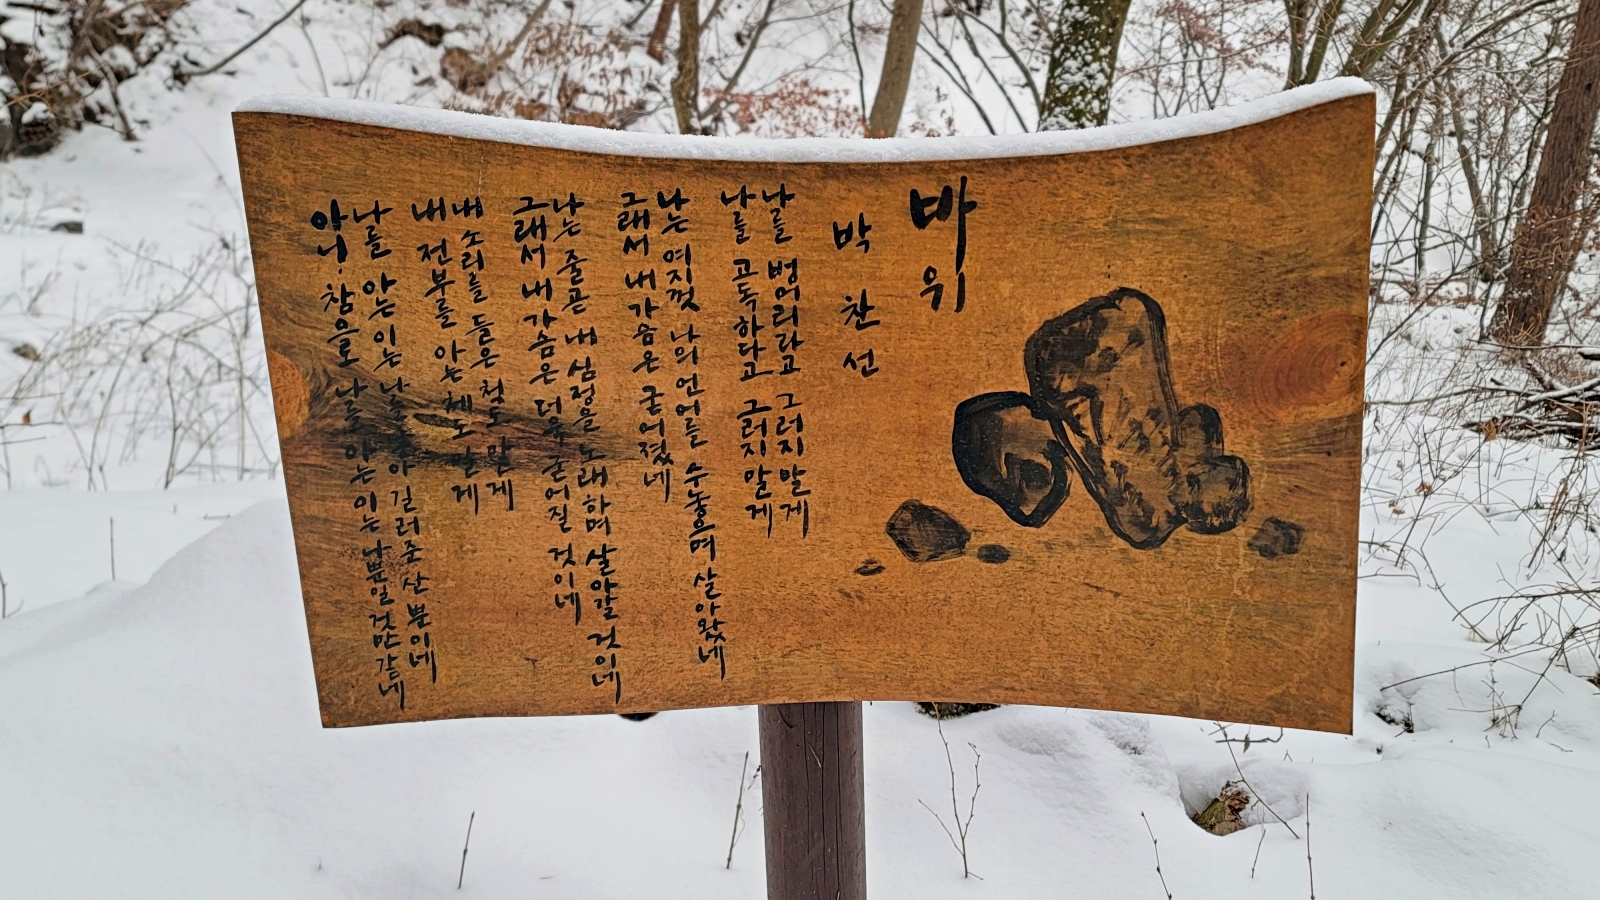 바위
박찬선
나를 벙어리라고 그러지 말게
나를 고독하다고 그러지 말게
나는 여지껏 나의 언어를 수놓으며 살아왔네
그래서 내 가슴은 굳어졌네
나는 줄곧 내 심정을 노래하며 살아갈 것이네
그래서 내 가슴은 더욱 굳어질 것이네
내 소리를 들은 척도 말게
내 전부를 아는 체도 말게
나를 아는 이는 나를 길러준 산 뿐이네
아니, 참으로 나를 아는 이는 나뿐일 것만 같네